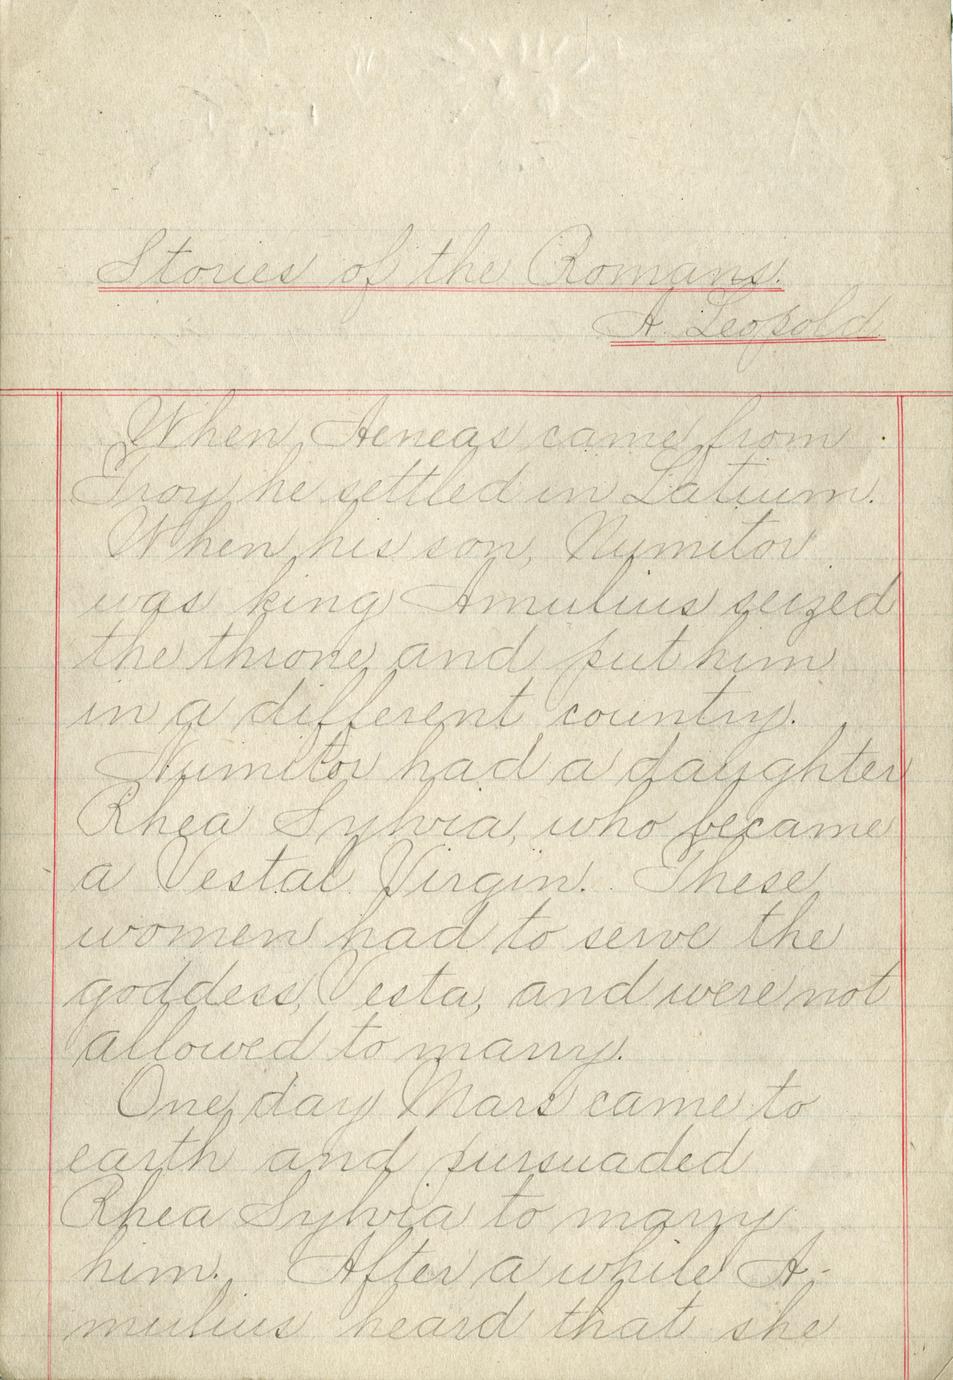 Stories of the Romans.
A. Leopold
When Aeneas came from
Troy he settled in Latium.
When his son, Numitor
was king Amulius seized
the throne and put him
in a different country.
Numitor had a daughter
Rhea Sylvia, who became
a Vestal Virgin. These
women had to serve the
goddess, Vesta, and were not
allowed to marry.
One day Mars came to
earth and pursuaded
Rhea Sylvia to marry
him. After a while A-
mulius heard that she